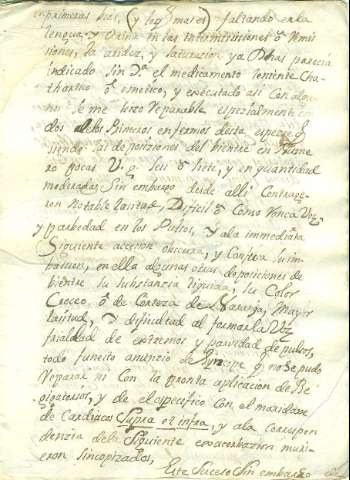 primeros dias, (y los mas) faltando en la
lengua, y Orina in las intermisiones ô Remi
siones, la aridez, y saturacion ya Dhas parecia
indicado sin Dª el medicamento leniente Cha
thartico ô emetico, y executado asi Con algu
nos Se me hizo reparable especialmente en
dos de los Primeros enfermos desta especie q
siendo las deposiziones del bientre en Nume
ro pocas V.g. seis ô siete, y en quantidad
moderadas, Sin embargo desde alli Contrage
ron Notable laxitud, Dificil ô Como Ronca Voz
y parbedad en los Pulsos, y a la immediata
Siguiente accesion obscura, y Confusa
en ella algunas otras deposiciones de
bientre su substancia liquida, su Color
Croceo, ô de Corteza de Naranja, Mayor
laxitud, y dificultad al formar la Voz
frialdad de extremos y parvidad de pulsos,
todo funesto anuncio de q no Se pudo
reparar ni Con la pronta aplicacion de Be
gigatorios, y de el especifico Con el
de Cardiacos Supra et infra, y a la Correspon
denzia de la Siguiente exacerbazion murie
eron sincopizados,
Este Suceso Sin embargo